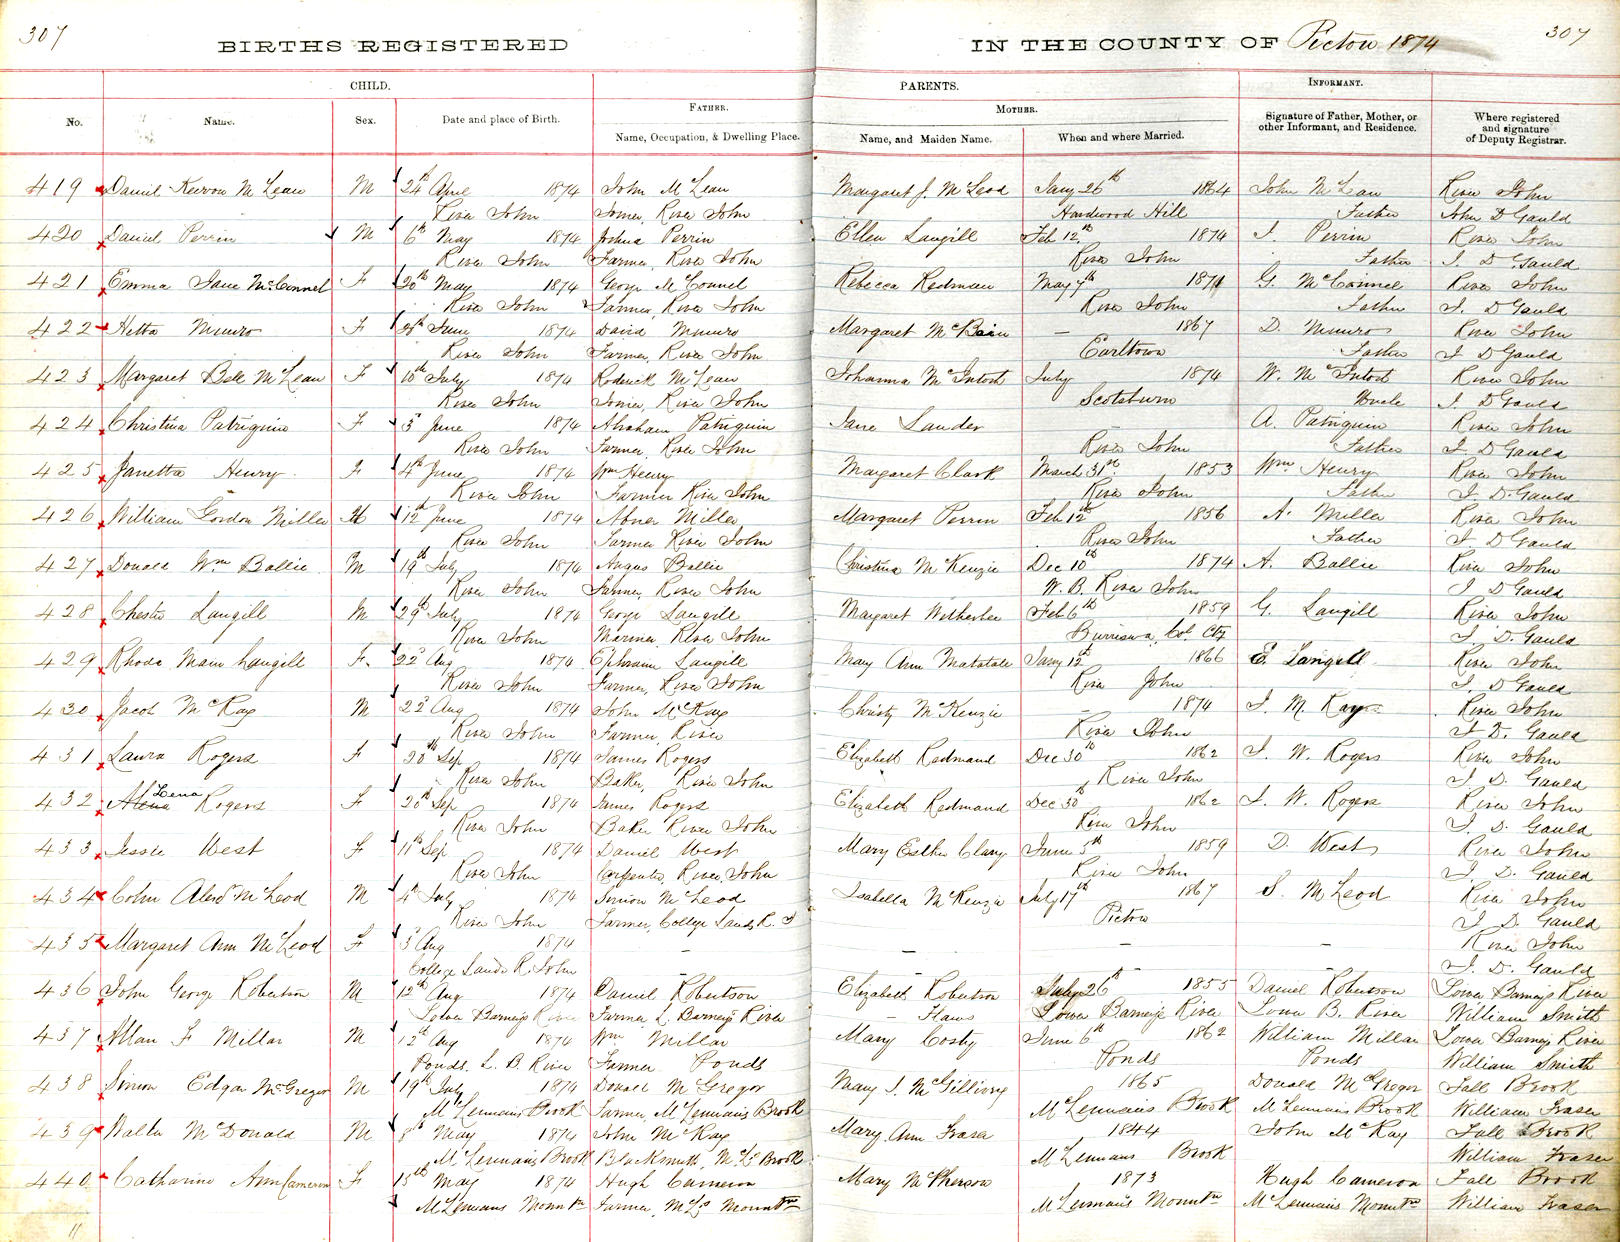 307 307
BIRTHS REGISTERED IN THE COUNTY OF Pictou 1874
CHILD. PARENTS. INFORMANT.
FATHER. MOTHER.
No. Name. Sex. Date and place of Birth. Name, Occupation, & Dwelling Place. Name, and Maiden Name. When and where Married. Signature of Father, Mother, or other Informant, and Residence. Where registered and signature of Deputy Registrar.
419 Daniel McLean M 24th April 1874 John McLean Margaret J. McLeod Jany 26th 1864 John McLean River John
River John River John Hardwood Hill Father John D Gauld
420 Daniel Perrin M 6th May 1874 Joshua Perrin Ellen Langill Feb 12th 1874 J. Perrin River John
River John Farmer, River John River John Father J. D Gauld
421 Emma Jane McConnel F 20th May 1874 George McConnel Rebecca Redman May 7th 1871 G. McConnel River John
River John Farmer, River John River John Father J. D Gauld
422 Hetta Munro F June 1874 David Munro Margaret McBain — 1867 D. Munro River John
River John Farmer, River John Earltown Father J D Gauld
423 Margaret Bell McLean F 10th July 1874 Roderick McLean Johanna McIntosh July 1874 W. McIntosh River John
River John River John Scotsburn Uncle J. D Gauld
424 Christina Patriquin F 3 June 1874 Abraham Patriquin Jane Lauder A. Patriquin River John
River John Farmer, River John River John Father J. D Gauld
425 Janetta Henry F 4th June 1874 Wm Henry Margaret Clark March 31st 1853 Wm Henry River John
River John Farmer River John River John Father J. D. Gauld
426 William Gordon Miller M 12th June 1874 Abner Miller Margaret Perrin Feb 12th 1856 A. Miller River John
River John Farmer River John River John Father J D Gauld
427 Donald Wm Ballie M 19th July 1874 Angus Ballie Christina McKenzie Dec 10th 1874 A. Ballie River John
River John Farmer, River John W. B. River John J D Gauld
428 Chester Langill M 29th July 1874 George Langill Margaret Feb 6th 1859 G. Langill River John
River John Mariner, River John Col Cty J. D. Gauld
429 Rhoda Langill F. 22d Aug 1874 Ephraim Langill Mary Ann Matatall Jany 12th 1866 E. Langill River John
River John Farmer, River John River John J. D Gauld
430 Jacob McKay M 22d Aug 1874 John McKay Christy McKenzie — 1874 J. M. Kay River John
River John Farmer, River River John J D. Gauld
431 Laura Rogers F 20th Sep 1874 James Rogers Elizabeth Redmand Dec 30th 1862 J. W. Rogers River John
River John Baker, River John River John J. D. Gauld
432 Lena Rogers F 20th Sep 1874 James Rogers Elizabeth Redmand Dec 30th 1862 J. W. Rogers River John
River John Baker River John River John J. D. Gauld
433 Jessie West F 11th Sep 1874 Daniel West Mary Esther Clary June 5th 1859 D. West River John
River John Carpenter, River John River John J. D. Gauld
434 Colin Alexr McLeod M 4th July 1874 Simon McLeod Isabella McKenzie July 17th 1867 S. McLeod River John
River John Farmer, College Lands R. J Pictou J. D. Gauld
435 Margaret Ann McLeod F 3 Aug 1874 — — — — River John
College Lands R. John J. D. Gauld
436 John George Robertson M 12th Aug 1874 Daniel Robertson Elizabeth Robertson July 26th 1855 Daniel Robertson Lower Barneys River
Lower Barneys River Farmer L. Barneys River — Haws Lower Barneys River Lower B. River William Smith
437 Allan F Millar M 12th Aug 1874 Wm Millar Mary Cosby June 6th 1862 William Millar Lower Barneys River
Ponds, L. B. River Farmer Ponds Ponds Ponds William Smith
438 Simon Edgar McGregor M 19th July 1874 Donald McGregor Mary J. McGillivry 1865 Donald McGregor Fall Brook
McLennans Brook Farmer, McLennans Brook McLennans Brook McLennans Brook William Fraser
439 Walter McDonald M 8th May 1874 John McKay Mary Ann Fraser 1844 John McKay Fall Brook
McLennans Brook Blacksmith, McLs Brook McLennans Brook William Fraser
440 Catharine Ann Cameron F 15th May 1874 Hugh Cameron Mary McPherson 1873 Hugh Cameron Fall Brook
McLennans Mountn Farmer, McLs Mountn McLennans Mountn McLennans Mountn William Fraser
11